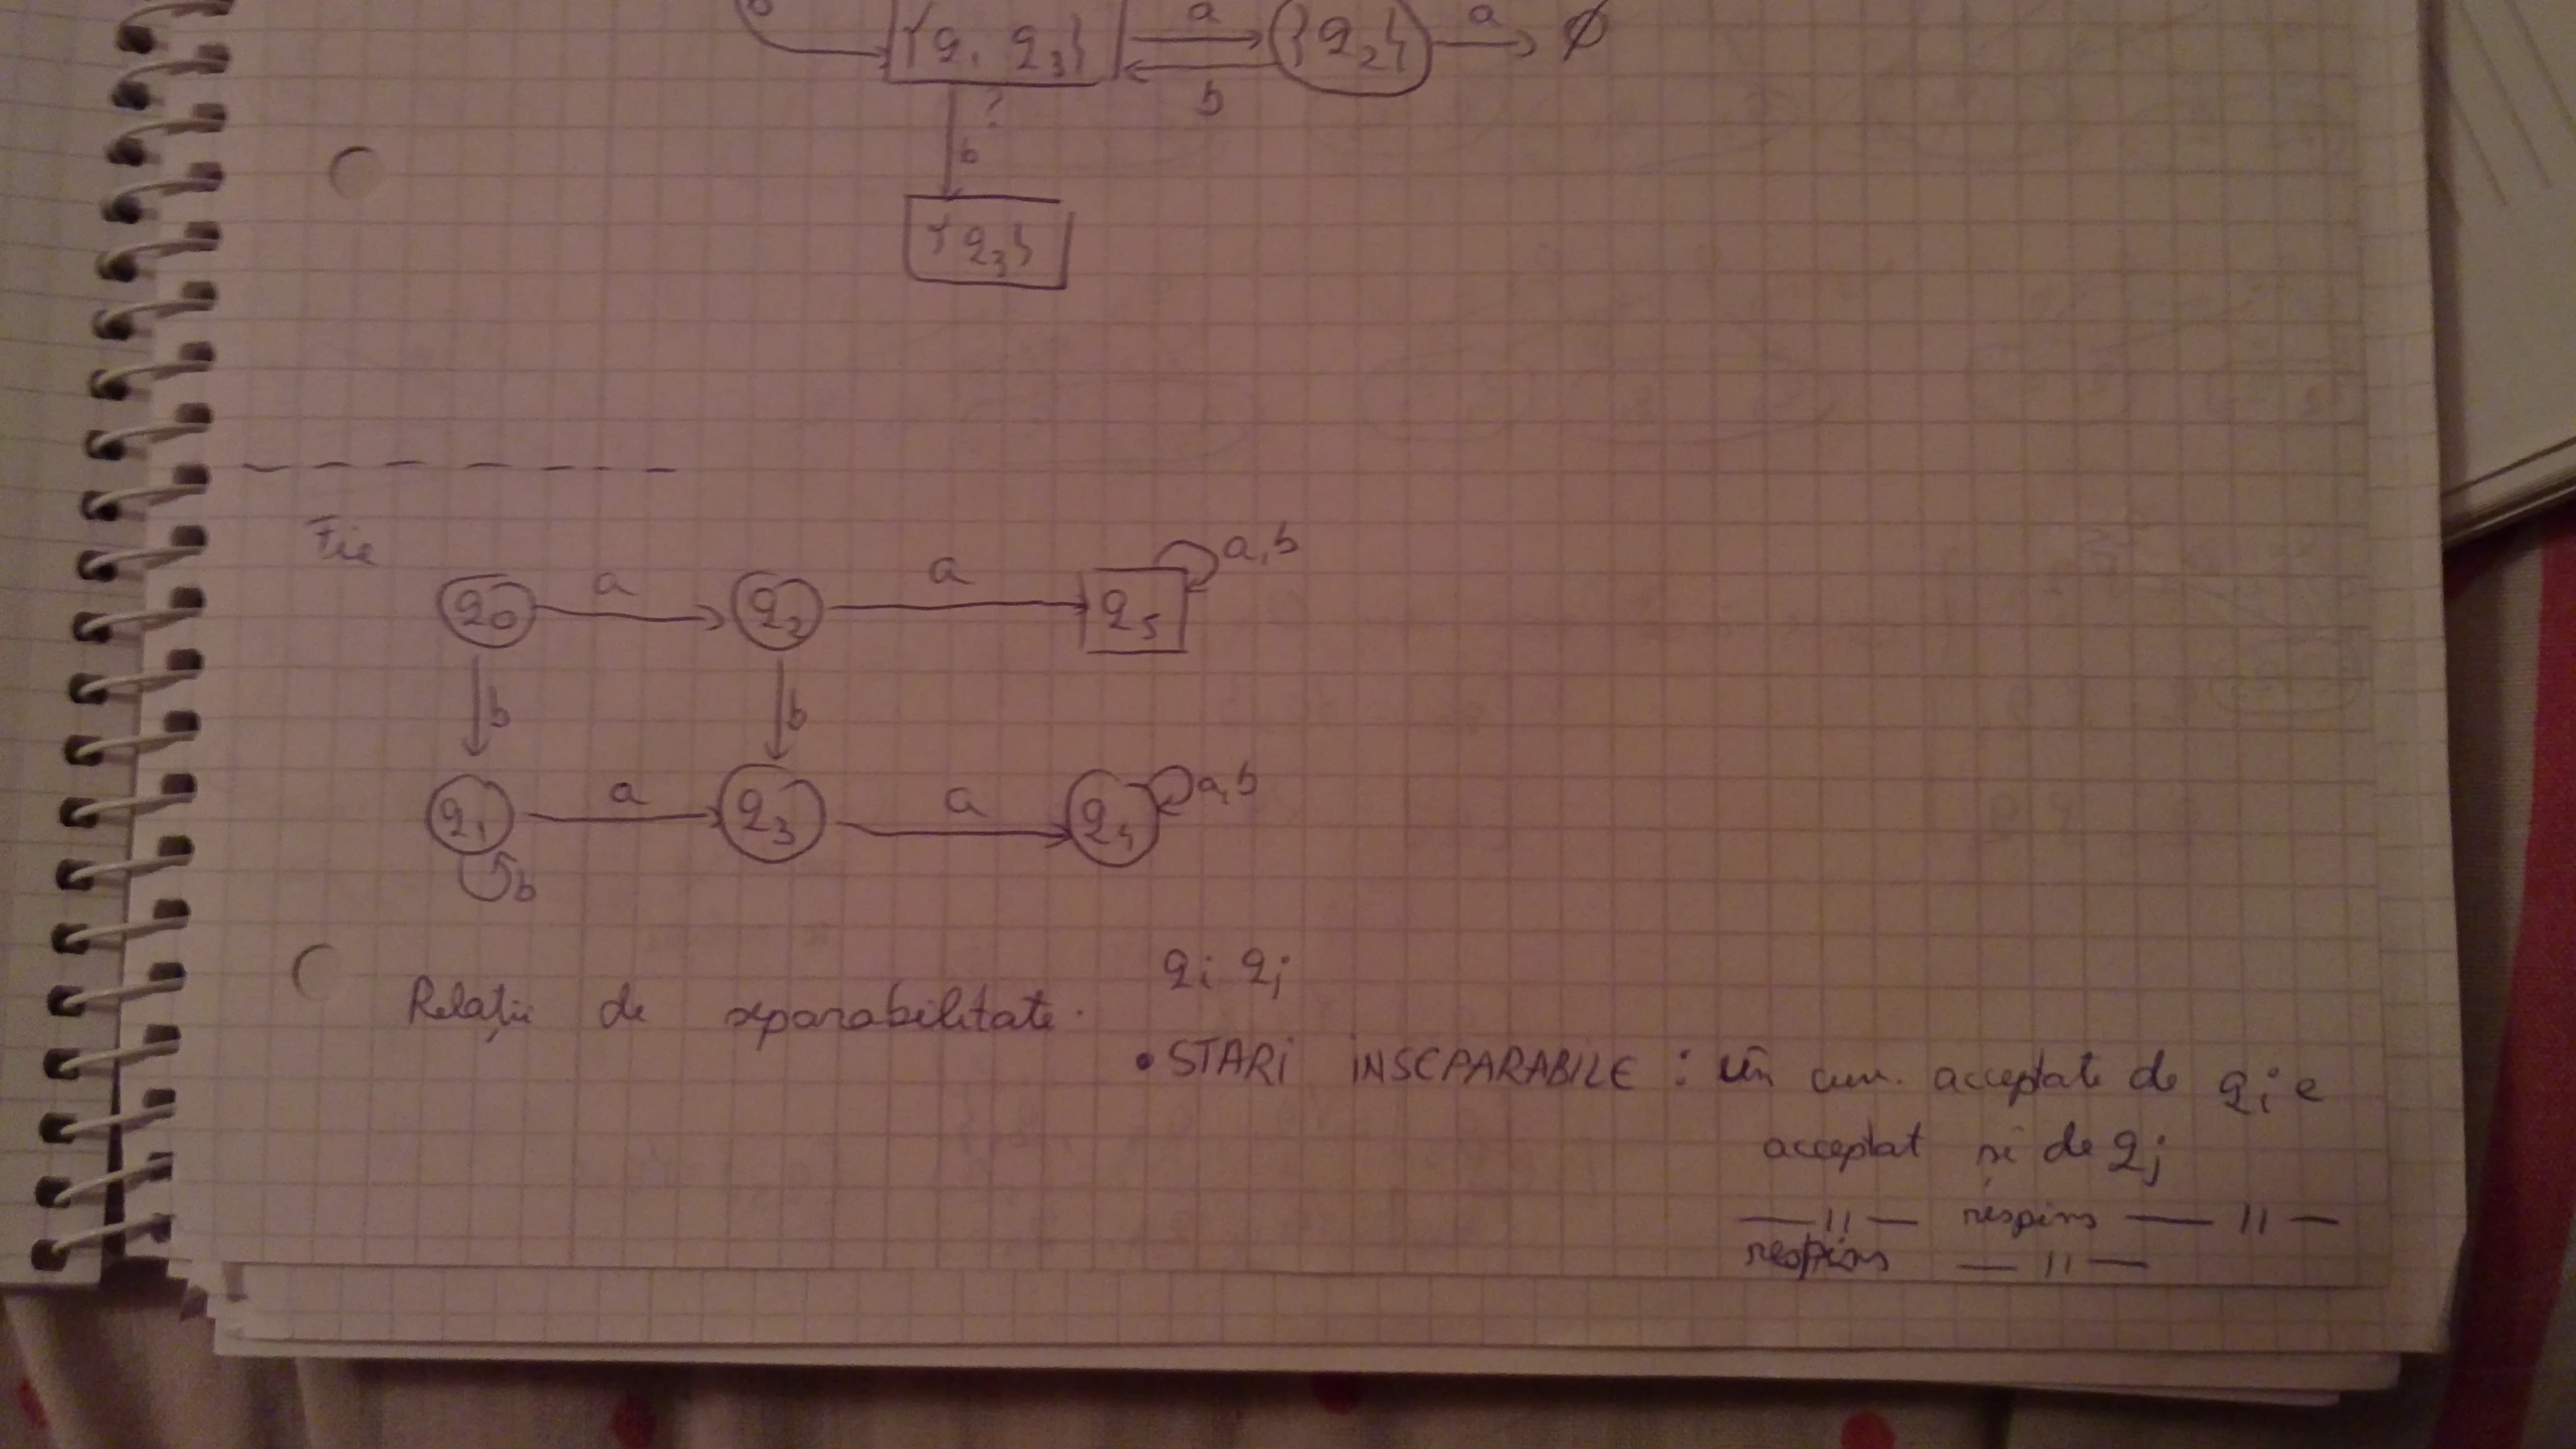 {q1 q3} a {q2} a ∅
b
?
b
{q3}
Fie
q0 a q2 a q5 a,b
b b
q1 a q3 a q4 a,b
b
qi qj
Relații de separabilitate.
• STARI INSEPARABILE : Un cuv. acceptat de qi e
acceptat și de qj
—〃— respins —〃—
respins —〃—